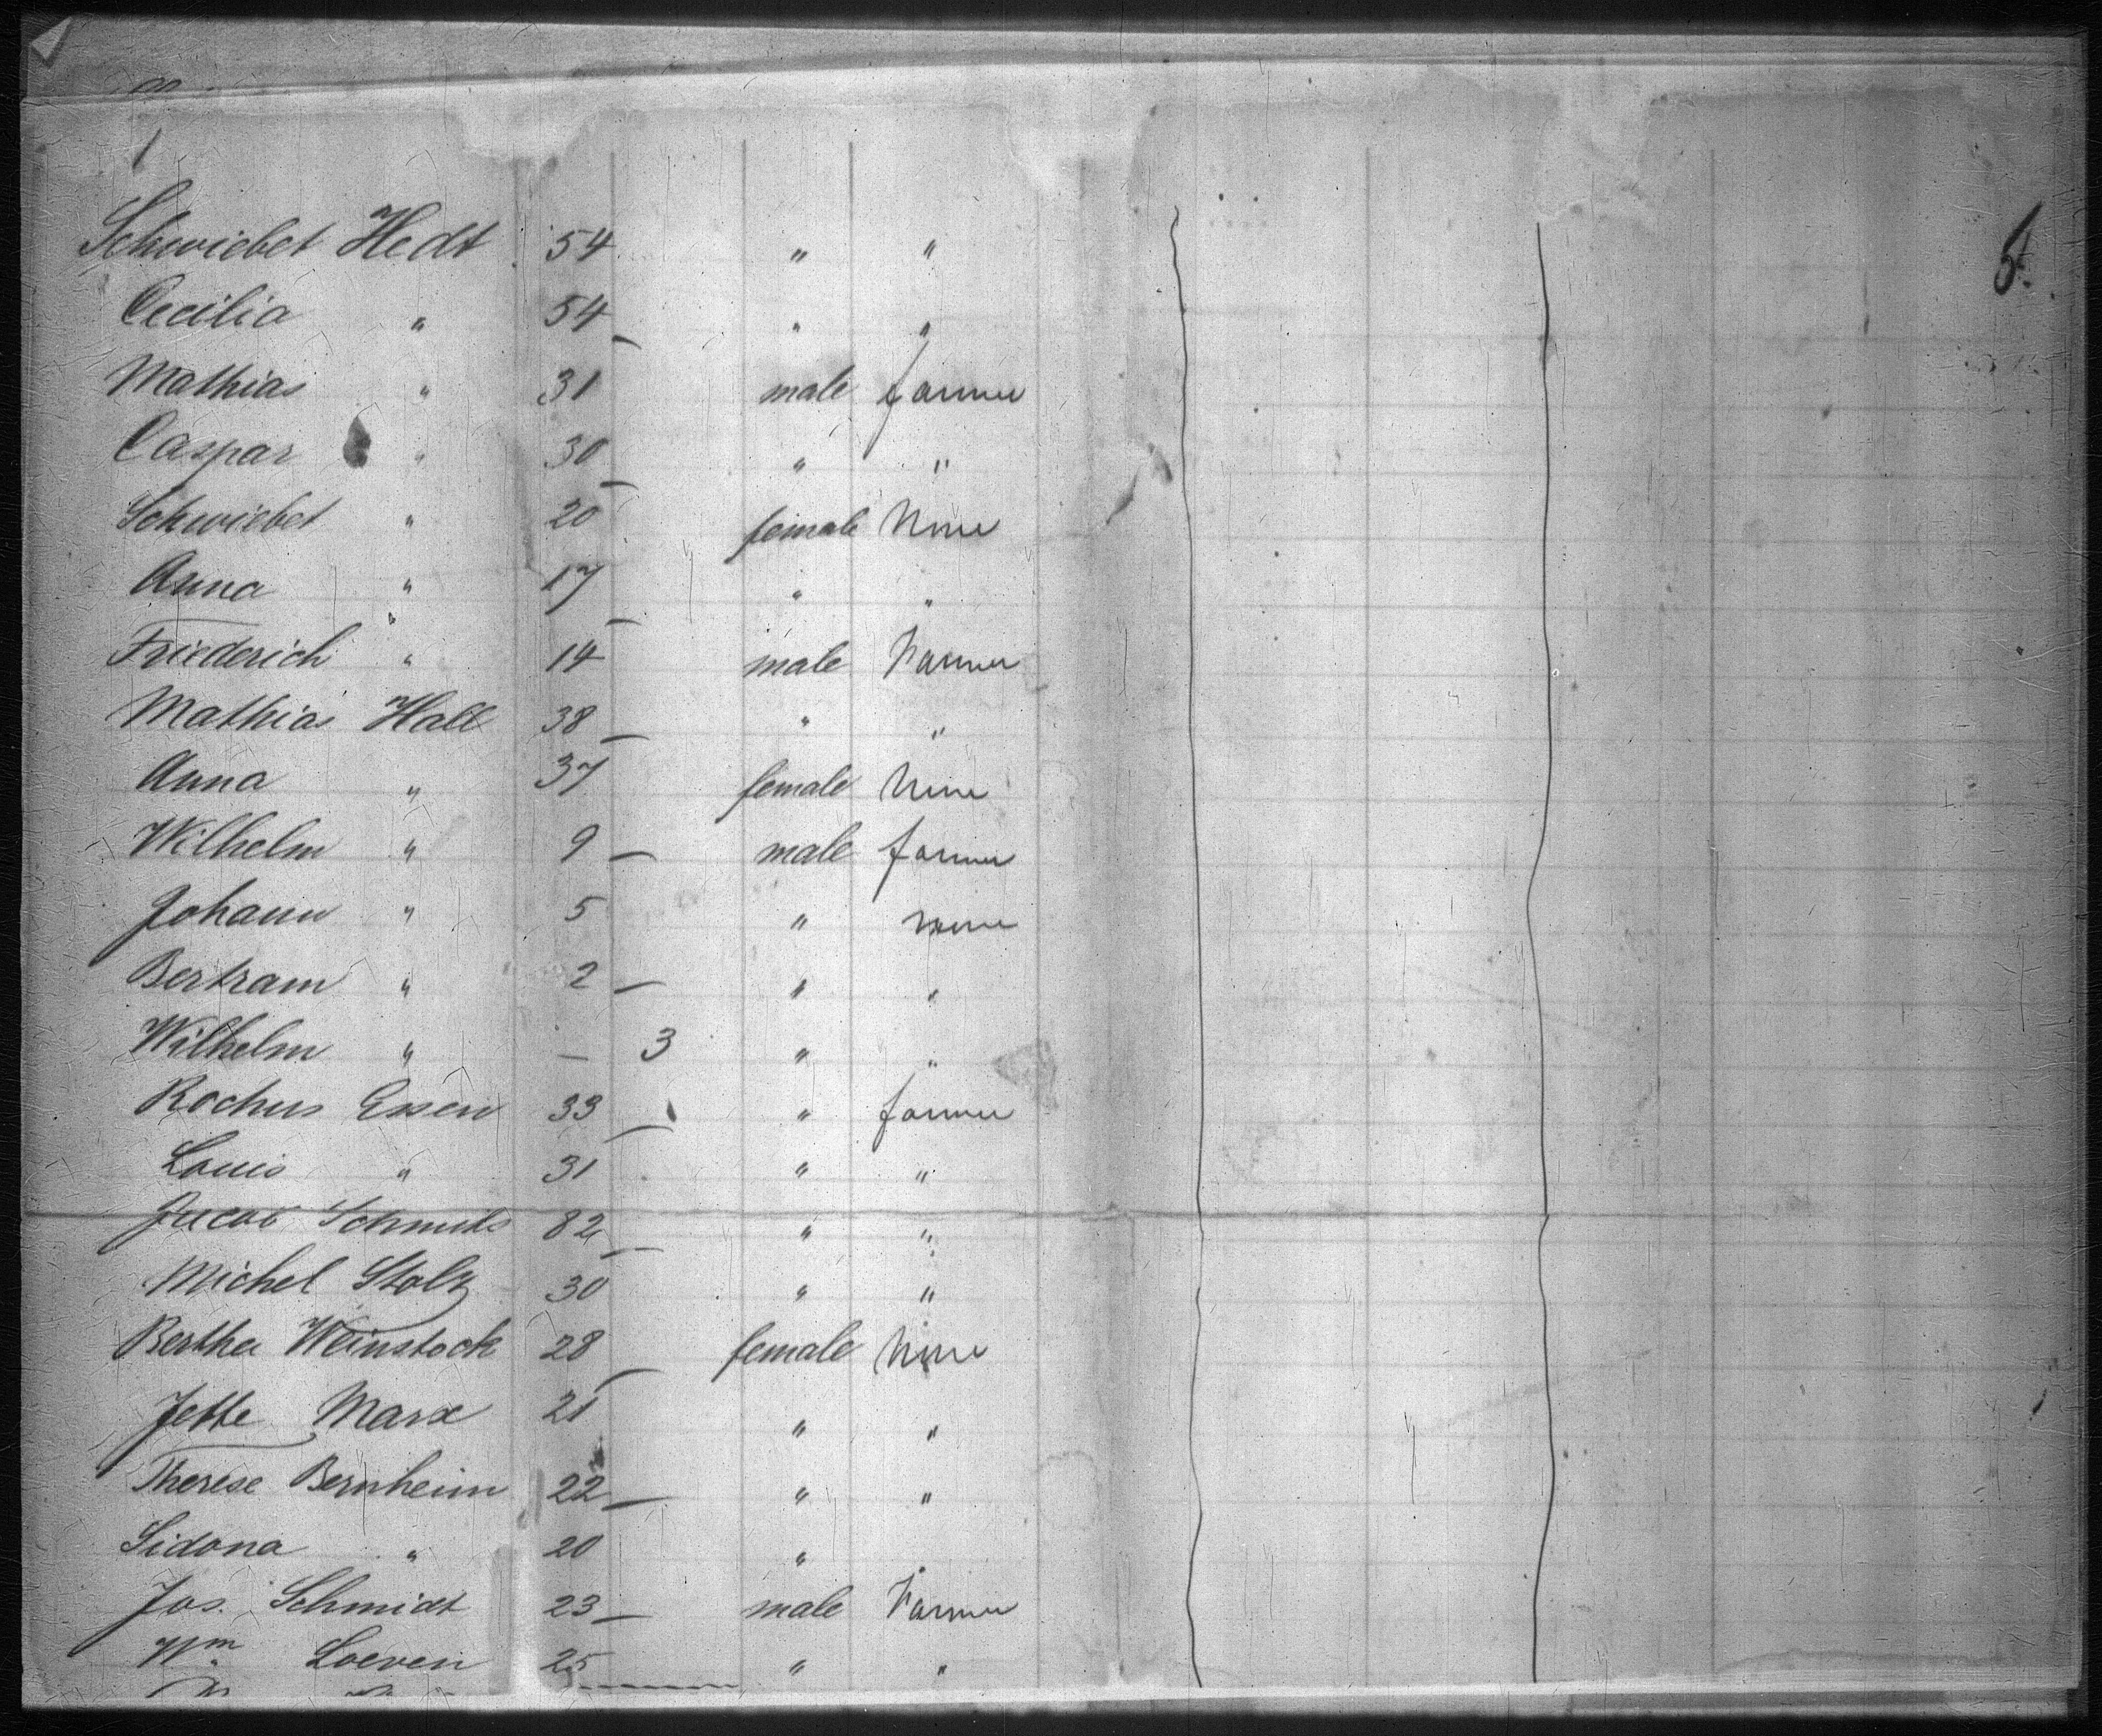 1
Schwiebet Hedt 54 " "
Cecilia " 54 " "
Mathias " 31 male farmer
Caspar " 30 " "
Schwiebet " 20 female None
Anna " 17 " "
Friederich " 14 male Farmer
Mathias Hall 38 " "
Anna " 37 female None
Wilhelm " 9 male farmer
Johann " 5 " none
Bertram " 2 " "
Wilhelm " — 3 " "
Rochus Essen 33 " farmer
Louis " 31 " "
Jacob Schmits 82 " "
Michel Stolz 30 " "
Bertha Weinstock 28 female None
Jette Marx 21 " "
Therese Bernheim 22 " "
Sidona " 20 " "
Jos. Schmidt 23 male Farmer
Wm Loeven 25 " "